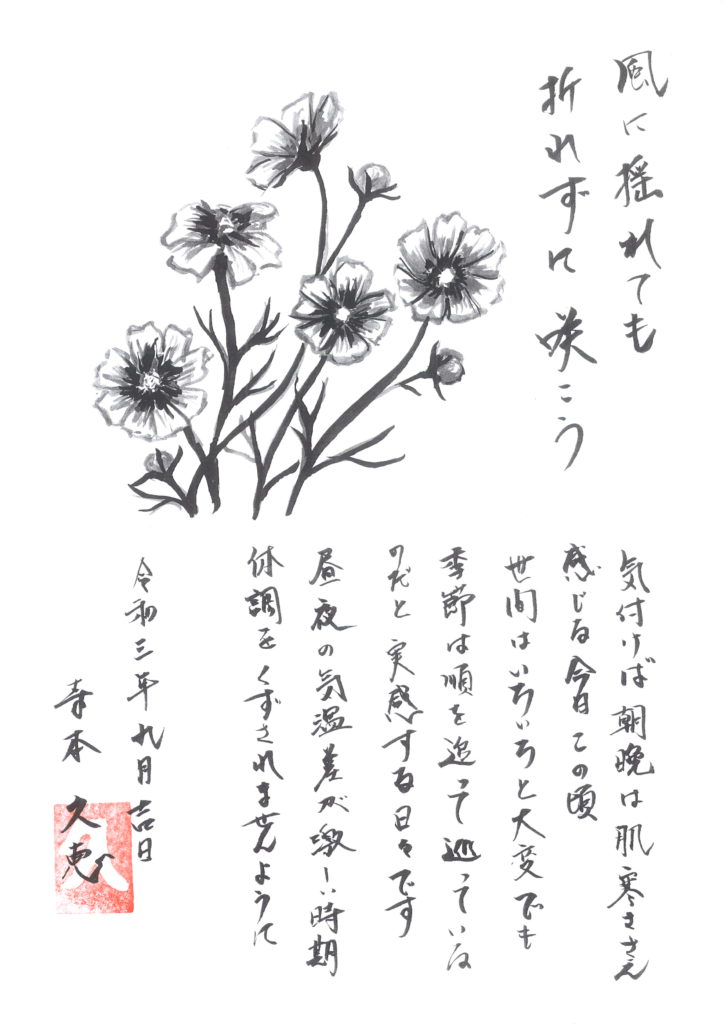 風に揺れても
折れずに咲こう
気付けば朝晩は肌寒ささえ
感じる今日この頃
世間はいろいろと大変でも
季節は順を追って巡っている
のだと実感する日々です
昼夜の気温差が激しい時期
体調をくずされませんように
令和三年九月吉日
寺本 久恵
久